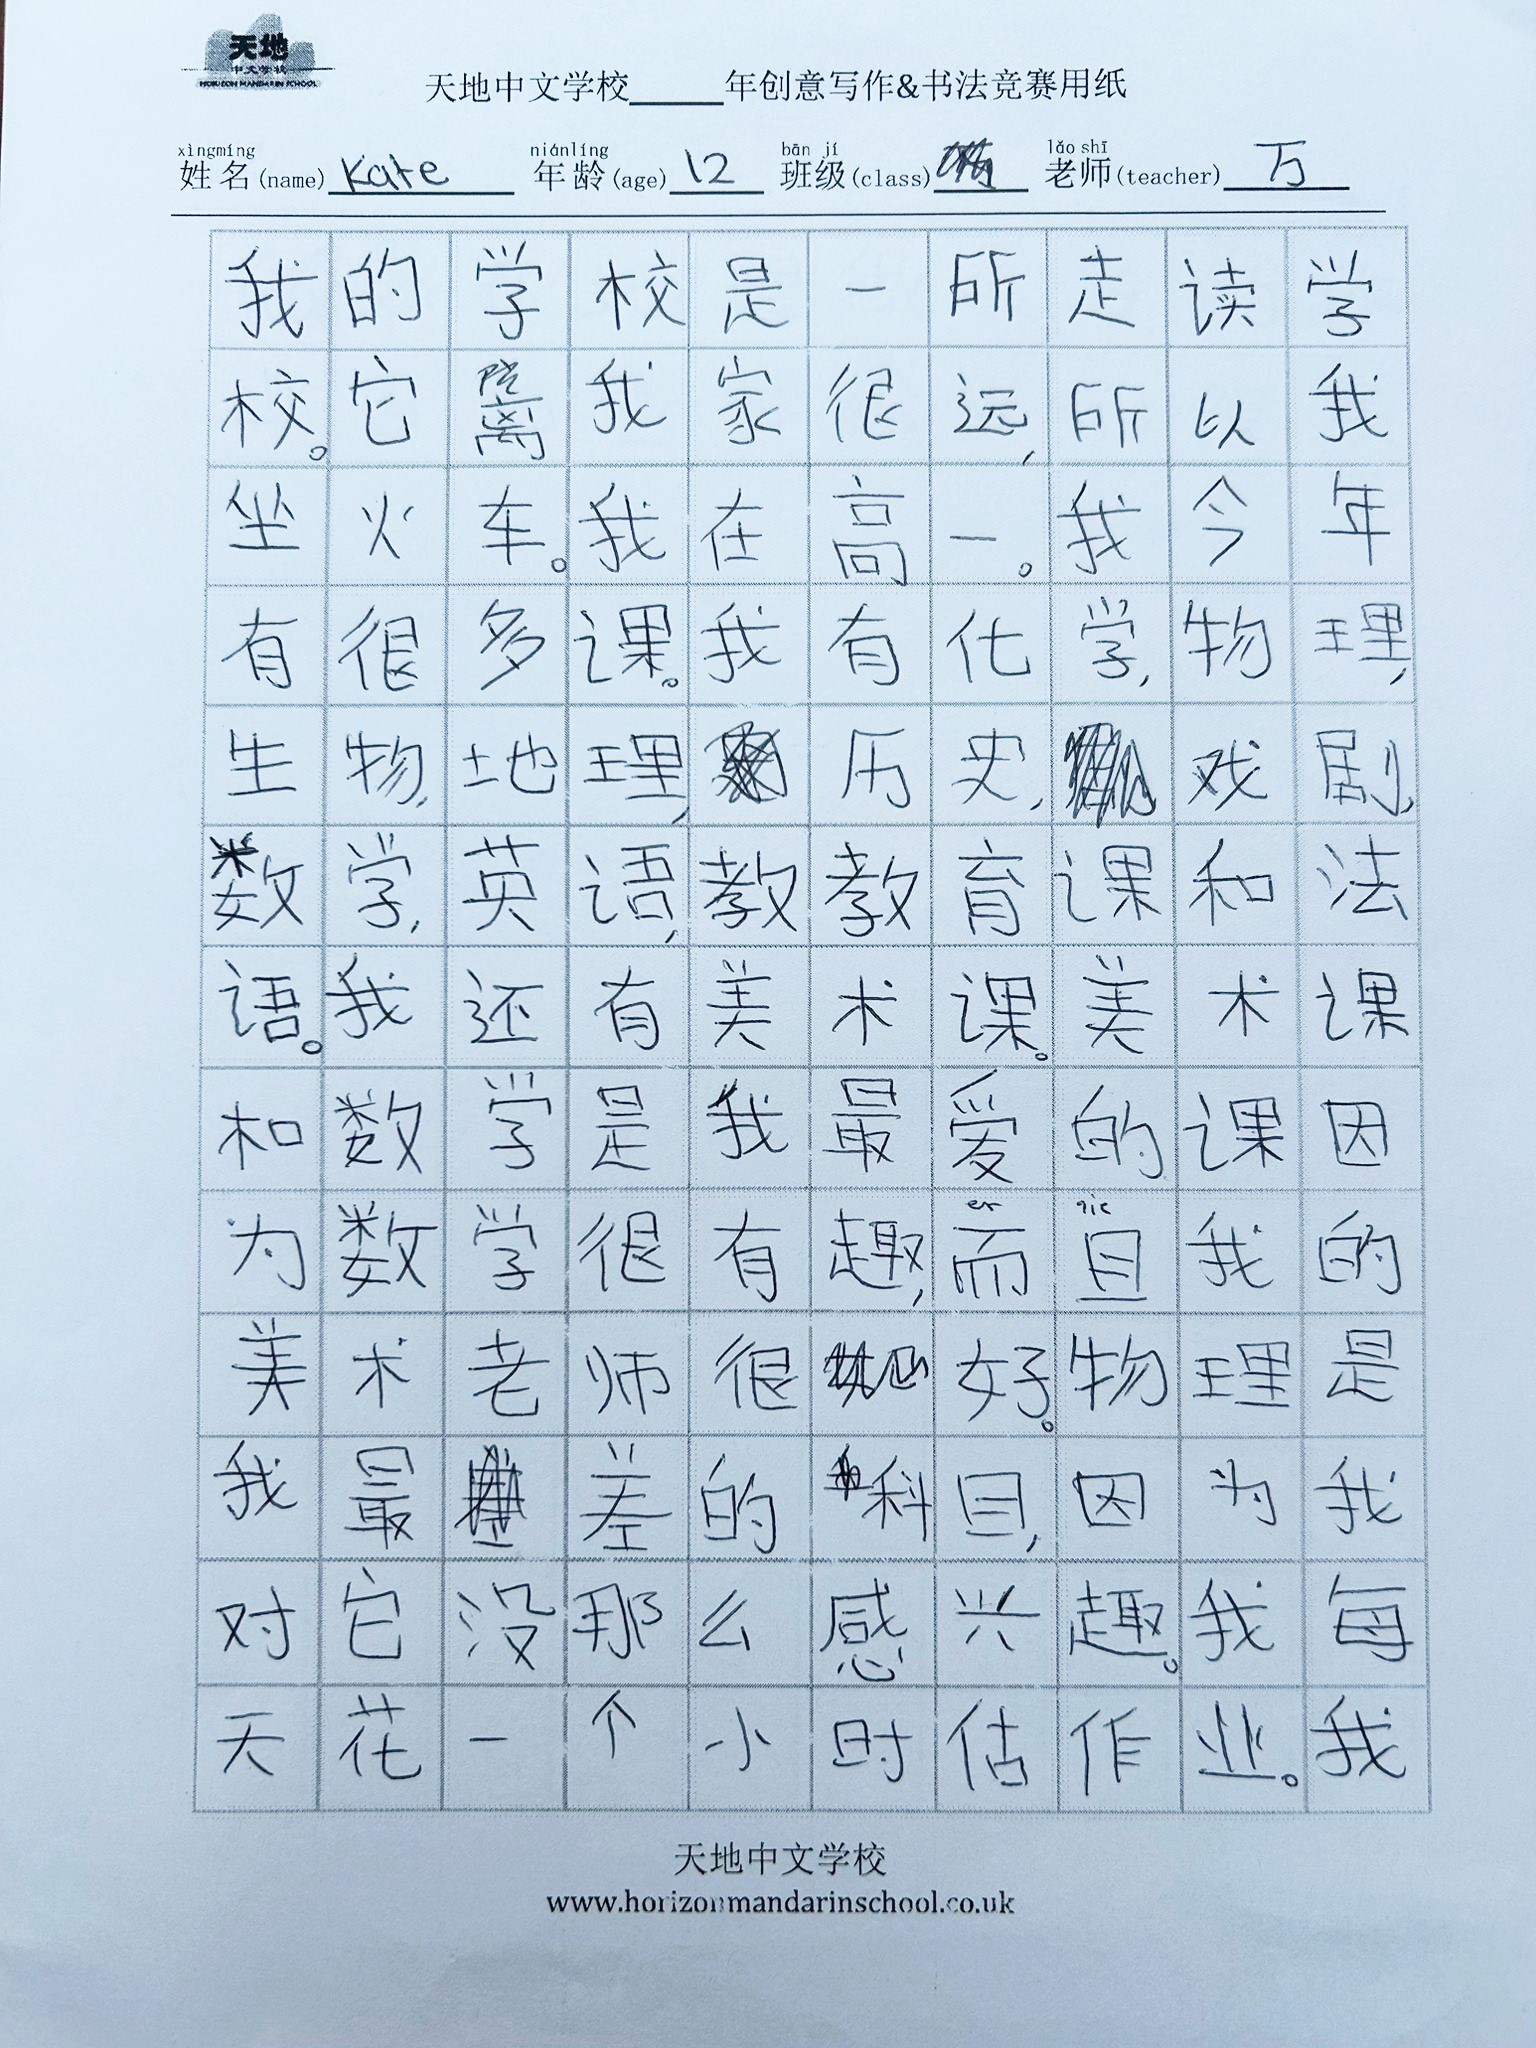 天地
中文学校
HORIZON MANDARIN SCHOOL
天地中文学校_____年创意写作&书法竞赛用纸
xìngmíng niánlíng bān jí lǎo shī
姓名(name) Kate 年龄(age) 12 班级(class) 老师(teacher) 万
我的学校是一所走读学
校。它离我家很远,所以我
坐火车。我在高一。我今年
有很多课。我有化学,物理,
生物,地理,历史,戏剧,
数学,英语,教教育课和法
语。我还有美术课。美术课
和数学是我最爱的课因
er qie
为数学很有趣,而且我的
美术老师很好。物理是
我最差的科目,因为我
对它没那么感兴趣。我每
天花一个小时估作业。我
天地中文学校
www.horizonmandarinschool.co.uk